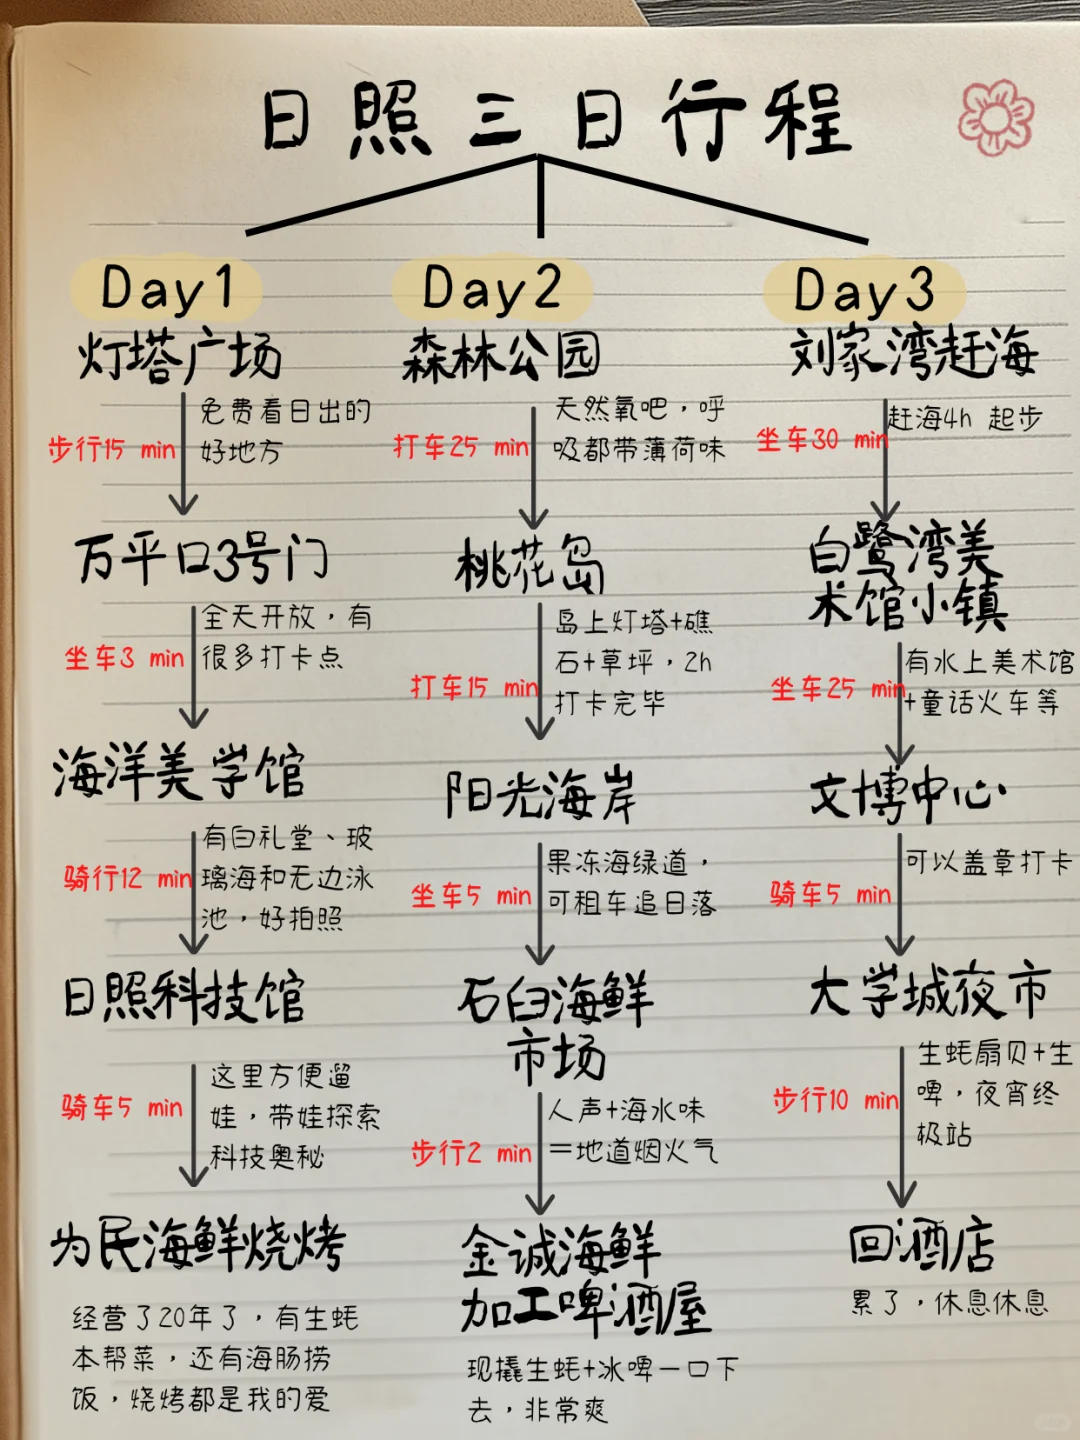 日照三日行程
Day1
灯塔广场
免费看日出的
好地方
步行15 min
万平口3号门
全天开放，有
很多打卡点
坐车3 min
海洋美学馆
有白礼堂、玻
璃海和无边泳
池，好拍照
骑行12 min
日照科技馆
这里方便遛
娃，带娃探索
科技奥秘
骑车5 min
为民海鲜烧烤
经营了20年了，有生蚝
本帮菜，还有海肠捞
饭，烧烤都是我的爱
Day2
森林公园
天然氧吧，呼
吸都带薄荷味
打车25 min
桃花岛
岛上灯塔+礁
石+草坪，2h
打卡完毕
打车15 min
阳光海岸
果冻海绿道，
可租车追日落
坐车5 min
石臼海鲜
市场
人声+海水味
=地道烟火气
步行2 min
金诚海鲜
加工啤酒屋
现撬生蚝+冰啤一口下
去，非常爽
Day3
刘家湾赶海
赶海4h 起步
坐车30 min
白鹭湾美
术馆小镇
有水上美术馆
+童话火车等
坐车25 min
文博中心
可以盖章打卡
骑车5 min
大学城夜市
生蚝扇贝+生
啤，夜宵终
极站
步行10 min
回酒店
累了，休息休息